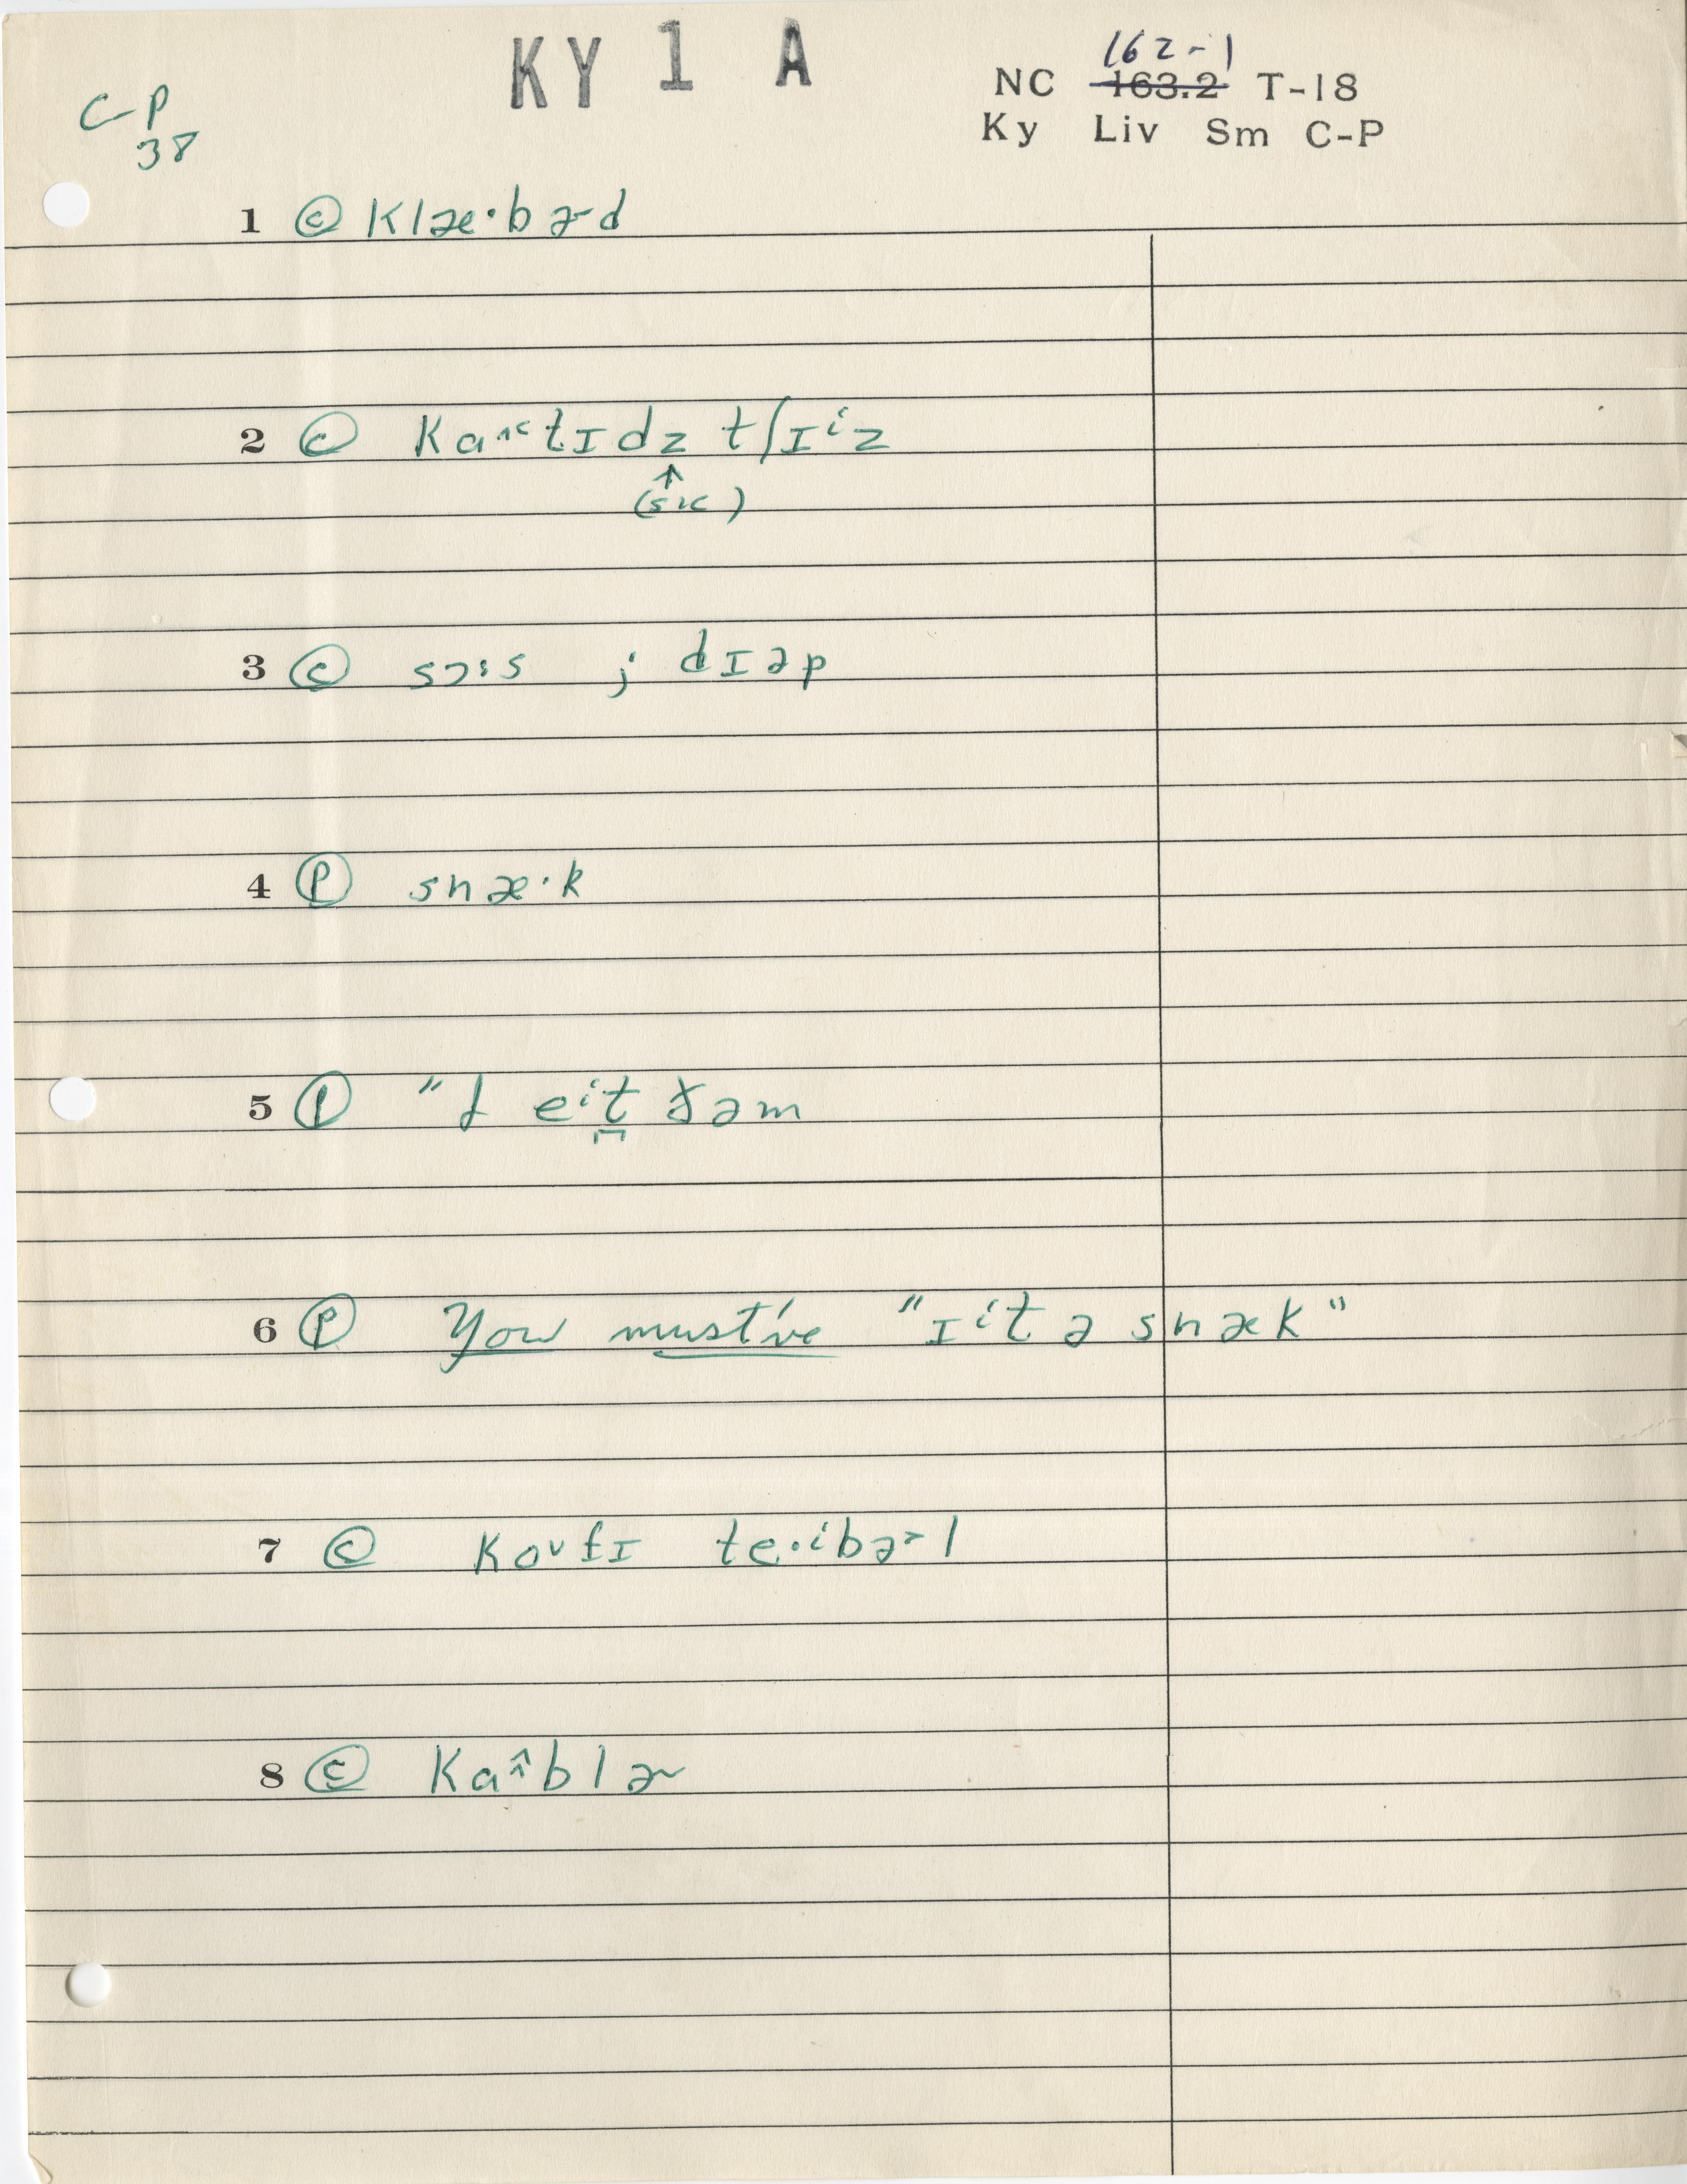 KY 1 A
162-1
NC 163.2 T-18
Ky Liv Sm C-P
C-P
38
1 Ⓒ klæ·bɚd
2 Ⓒ kaʌ˂tɪdz tʃɪⁱz
↑
(sic)
3 Ⓒ sɔ:s ; dɪəp
4 Ⓟ snæ·k
5 Ⓟ "I eⁱt̪ ðəm
6 Ⓟ You must've "ɪⁱt ə snæk"
7 Ⓒ koᴜfɪ te·ⁱbə˃l
8 Ⓒ kaɪblɚ